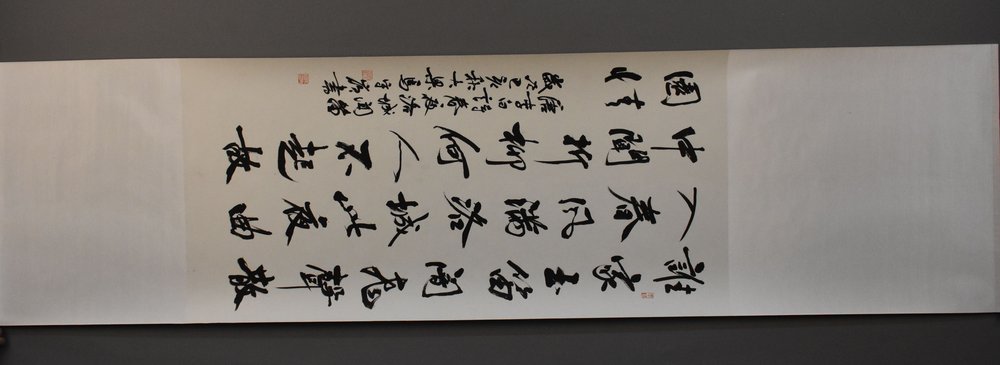 誰家玉笛闇飛聲散
入春風滿洛城此夜曲
中聞折柳何人不起故
園情
唐李白詩春夜洛城聞笛
歲次己亥 書